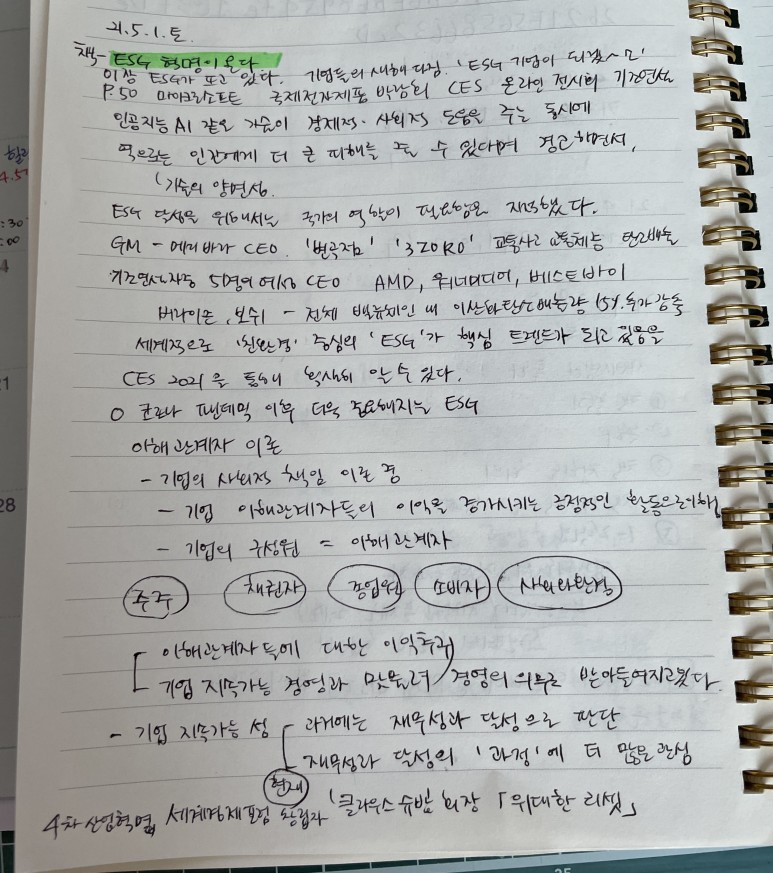 21.5.1.토.
책 - ESG 혁명이 온다
이장 ESG가 뜨고 있다. 기업들의 새해 다짐. 'ESG 기업이 되겠~다'
P.50 마이크로소프트 국제전자제품 박람회 CES 온라인 전시회 기조연설
인공지능 AI 같은 기술이 경제적·사회적 도움을 주는 동시에
역으로는 인간에게 더 큰 피해를 줄 수 있다며 경고하면서,
기술의 양면성.
ESG 달성을 위해서는 국가의 역할이 필요함을 지적했다.
GM - 메리바라 CEO. '변곡점' '3 ZORO' 교통사고 교통체증 탄소배출
기조연설자중 5명의 여성 CEO AMD, 워너미디어, 베스트바이
버라이즌, 보쉬 - 전체 밸류체인 내 이산화탄소배출량 15% 추가감축
세계적으로 '친환경' 중심의 'ESG'가 핵심 트렌드가 되고 있음을
CES 2021을 통해 확실히 알 수 있다.
○ 코로나 팬데믹 이후 더욱 중요해지는 ESG
이해관계자 이론
- 기업의 사회적 책임 이론 중
- 기업 이해관계자들의 이익을 증가시키는 긍정적인 활동으로 이해
- 기업의 구성원 = 이해관계자
주주 채권자 종업원 소비자 사회와환경
이해관계자들에 대한 이익추구
기업 지속가능 경영과 맞물려 경영의 의무로 받아들여지고있다.
- 기업 지속가능성 과거에는 재무성과 달성으로 판단
재무성과 달성의 '과정'에 더 많은 관심
현재
4차 산업혁명, 세계경제포럼 창립자 '클라우스 슈밥 회장 「위대한 리셋」